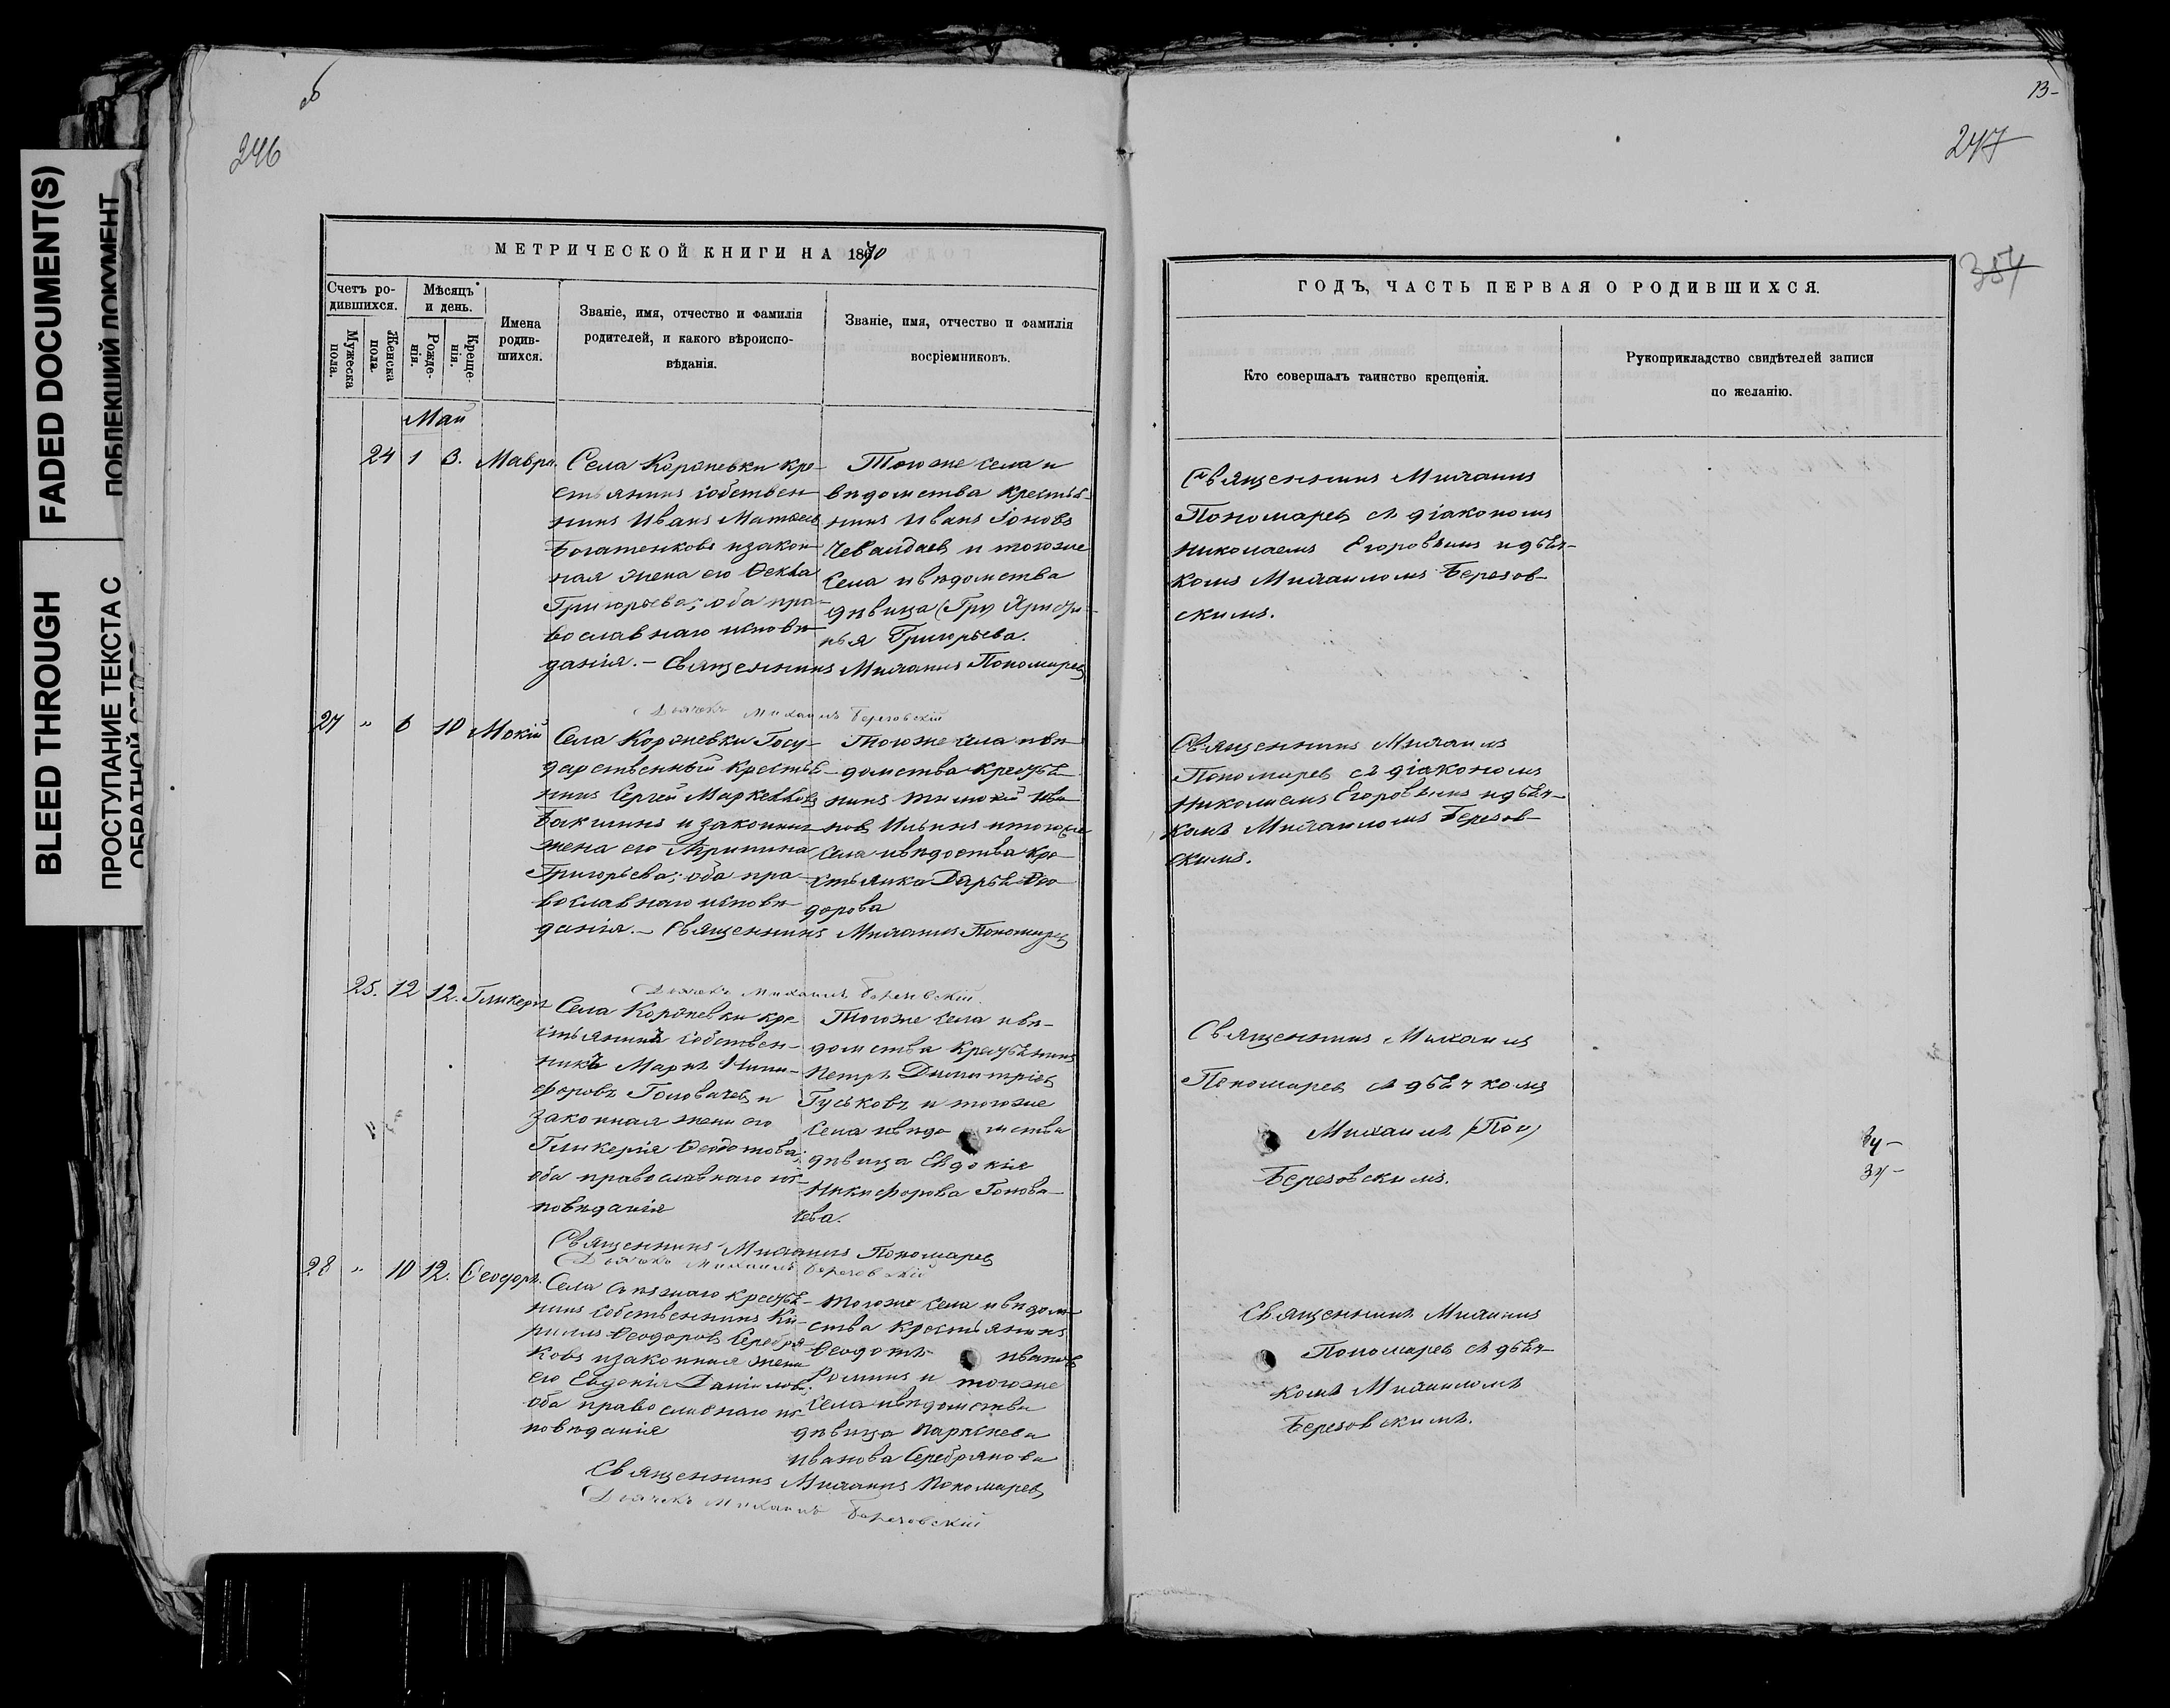 FADED DOCUMENT(S)
ПОБЛЕКШИЙ ДОКУМЕНТ
BLEED THROUGH
ПРОСТУПАНИЕ ТЕКСТА С
ОБРАТНОЙ
246
МЕТРИЧЕСКОЙ КНИГИ НА 1870
Счетъ ро-
дившихся.
Мѣсяцъ
и день.
Мужеска
пола.
Женска
пола.
Рожде-
нія.
Креще-
нія.
Имена
родив-
шихся.
Званіе, имя, отчество и фамилія
родителей, и какого вѣроиспо-
вѣданія.
Званіе, имя, отчество и фамилія
воспріемниковъ.
Май
24 1 3. Мавра.
Села Короневки кре-
стьянинъ собствен-
никъ Иванъ
Богатенковъ и закон-
ная жена его Ѳекла
Григорьева; оба пра-
вославнаго исповѣ-
данія. – Священникъ Михаилъ Пономарев
Тогоже села и
вѣдомства крестья-
нинъ Иванъ Іоновъ
и тогоже
села и вѣдомства
дѣвица
Григорьева.
Дьячекъ Михаилъ Березовскій
27 " 6 10 Мокій
Села Короневки Госу-
дарственный крестья-
нинъ Сергей Маркелловъ
Бакшинъ и законная
жена его Агрипина
Григорьева; оба пра-
вославнаго исповѣ-
данія. – Священникъ Михаилъ Пономарев
Тогоже села и вѣ-
домства крестья-
нинъ Тимофей Ива-
нов Ильинъ и тогоже
села и вѣдомства кре-
стьянка Дарья Ѳео-
дорова
Дьячекъ Михаилъ Березовскій.
25. 12 12. Гликерія
Села Короневки кре-
стьянинъ собствен-
никъ Маркъ Ники-
форовъ Головачев и
законная жена его
Гликерія Ѳеодотова;
оба православнаго ис-
повѣданія
Тогоже села и вѣ-
домства крестьянинъ
Петръ Димитріев
Гуськовъ и тогоже
села и вѣдомства
дѣвица Евдокія
Никифорова Голова-
чева.
Священникъ Михаилъ Пономарев
Дьячекъ Михаилъ Березовскій
28 " 10 12. Ѳеодоръ.
Села крестья-
нинъ собственникъ Ки-
риллъ Ѳеодоров Серебря-
ковъ и законная жена
его Евдокія Данилова;
оба православнаго ис-
повѣданія
тогоже села и вѣдом-
ства крестьянинъ
Ѳеодотъ Иванов
Ѳоминъ и тогоже
села и вѣдомства
дѣвица Параскева
Иванова
Священникъ Михаилъ Пономарев
Дьячекъ Михаилъ Березовскій
13-
247
354
ГОДЪ, ЧАСТЬ ПЕРВАЯ О РОДИВШИХСЯ.
Кто совершалъ таинство крещенія.
Рукоприкладство свидѣтелей записи
по желанію.
Священникъ Михаилъ
Пономарев съ діакономъ
Николаемъ Егоровымъ и дьяч-
комъ Михаиломъ Березов-
скимъ.
Священникъ Михаилъ
Пономарев съ діакономъ
Николаемъ Егоровымъ и дьяч-
комъ Михаиломъ Березов-
скимъ.
Священникъ Михаилъ
Пономарев съ дьячкомъ
Михаилъ (Пон)
Березовскимъ.
Священникъ Михаилъ
Пономарев съ дьяч-
комъ Михаиломъ
Березовскимъ.